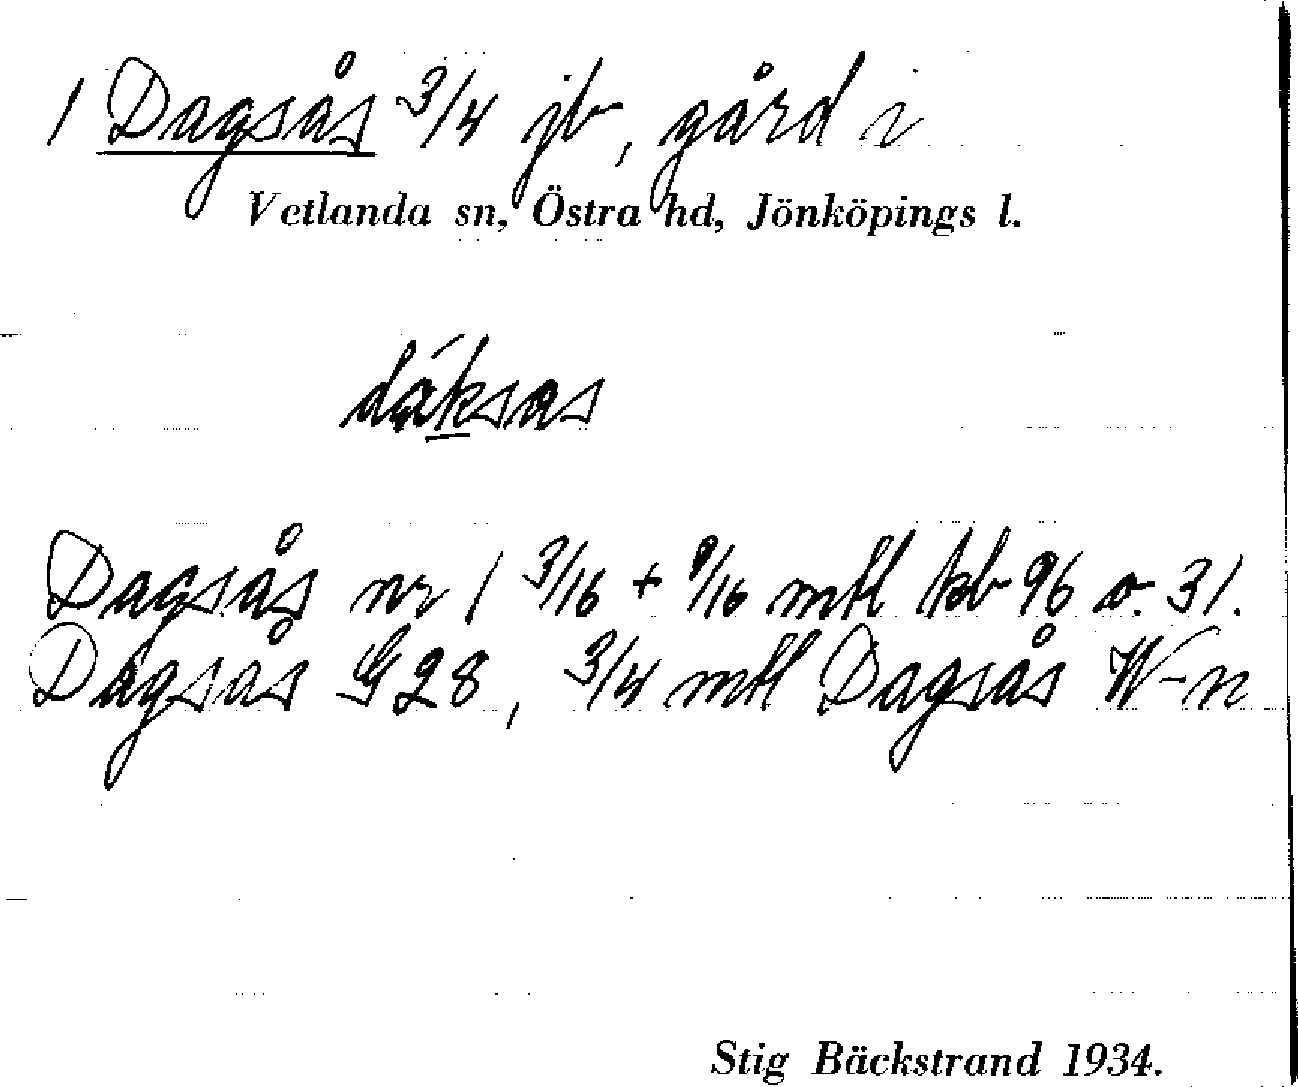 1 Dagsås 3/4 jb, gård i
Vetlanda sn, Östra hd, Jönköpings l.
dáksas
Dagsås nr 1 3/16 + 9/16 mtl kb 96 o. 31.
Dagsås G 28, 3/4 mtl Dagsås W-n
Stig Bäckstrand 1934.